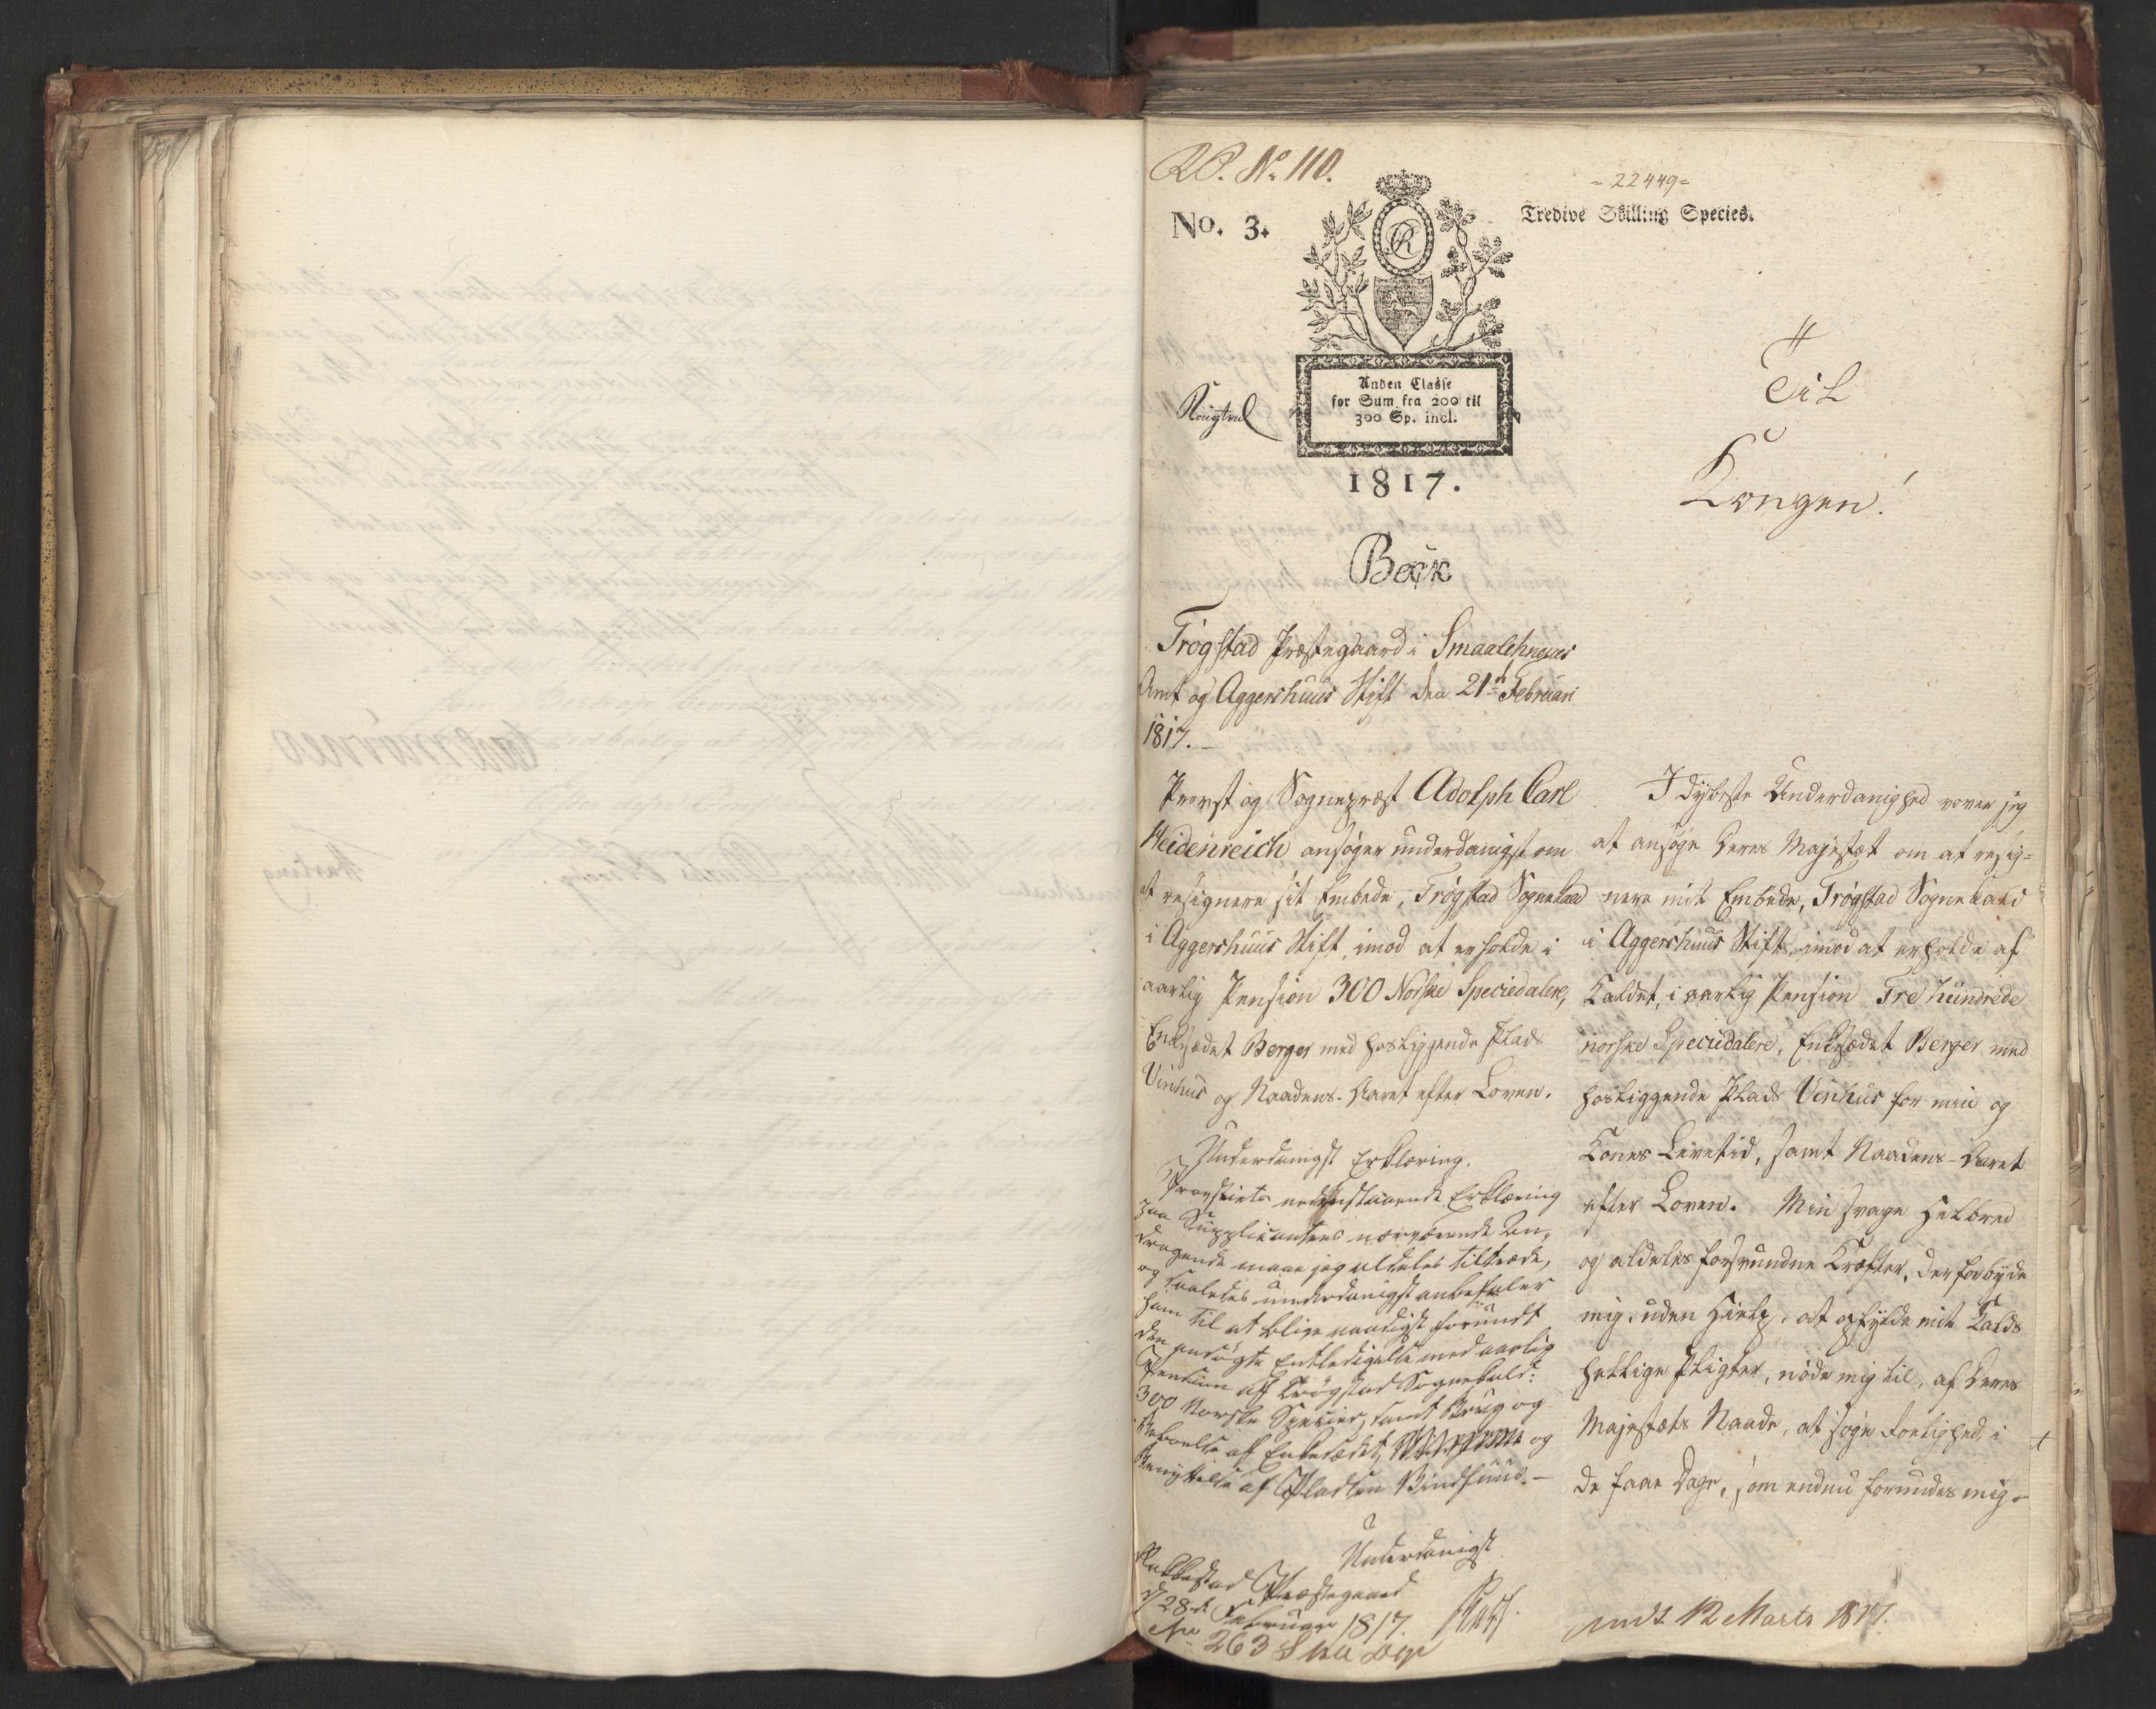 No. 110.
No. 3.
= 22449 =
Tredive Skilling Species.
R
Anden Classe
for Sum fra 200 til
300 Sp. incl.
1817.
Beck
Trögstad Præstegaard i Smaalehnenes
Amt og Aggershuus Stift den 21de Februari
1817.
Provst og Sognepræst Adolph Carl
Heidenreich ansöger underdanigst om
at resignere sit Embede, Trögstad Sognekald
i Aggershuus Stift, imod at erholde i
aarlig Pension 300 Norske Speciedalere,
Enkesædet Berger med hosliggende Plads
Vinhus og Naadens-Aaret efter Loven.
Underdanigst Erklæring.
Provstiets nedenstaaende Erklæring
paa Supplicantens nærværende An-
dragende maae jeg aldeles tiltræde,
og saaledes underdanigst anbefaler
ham til at blive naadigst forundt
den ansögte Entledigelse med aarlig
Pension af Trögstad Sognekald:
300 Norske Species, samt Brug og
Beboelse af Enkesædet og
Benyttelse af Pladsen Vindhuus.-
Underdanigst
Rakkestad Præstegaard
d 28de Februar 1817.
No 263
Til
Kongen!
I dybeste Underdanighed vover jeg
at ansöge Deres Majestæt om at resig=
nere mit Embede, Trögstad Sognekald
i Aggershuus Stift, imod at erholde af
Kaldet, i aarlig Pension Tre hundrede
norske Speciedalere, Enkesædet Berger med
hosliggende Plads Vinhus for min og
Kones Levetid, samt Naadens-Aaret
efter Loven. Min svage Helbred
og aldeles forsvundne Kræfter, der forbyde
mig, uden Hielp, at opfylde mit Kalds
hellige Pligter, nöde mig til, af Deres
Majestæts Naade, at söge Roelighed i
de faae Dage, som endnu forundes mig.
indk. 12 Marts 1817.